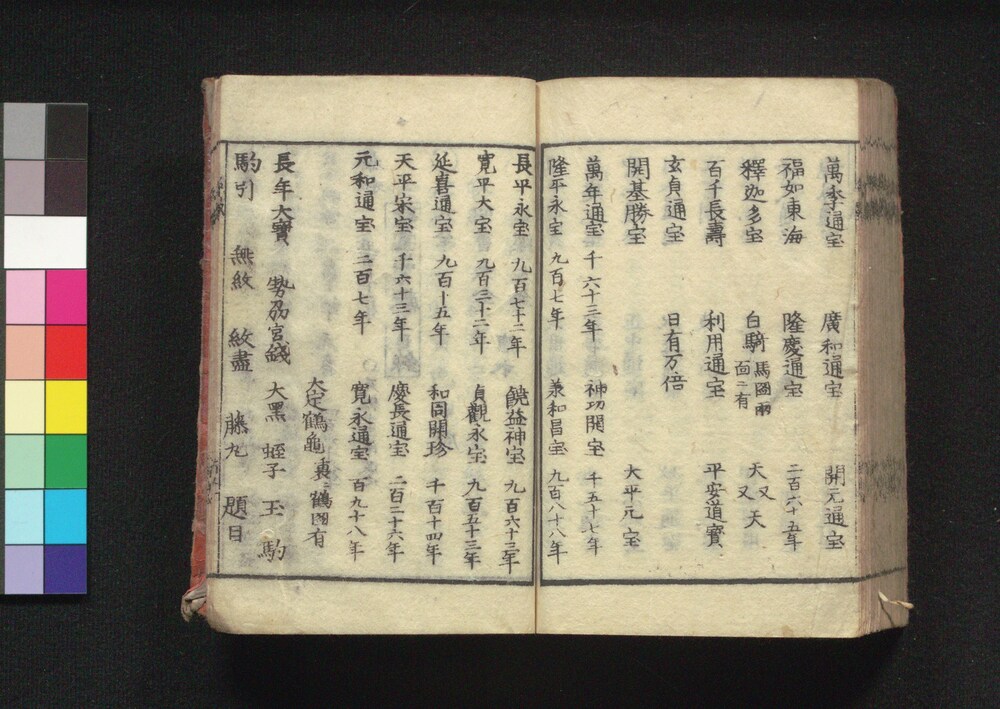 萬季通宝 廣和通宝 開元通宝
福如東海 隆慶通宝 二百六十五年
釋迦多宝 白騎 馬図兩面ニ有 天又天又
百千長壽 利用通宝 平安道寶
玄貞通宝 日有万倍
開基勝宝 大平元宝
萬年通宝 千六十三年 神功開宝 千五十七年
隆平永宝 九百七年 羕和昌宝 九百八十八年
長平永宝 九百七十二年 饒益神宝 九百六十三年
寛平大宝 九百三十二年 貞觀永宝 九百五十三年
延喜通宝 九百十五年 和同開珍 千百十四年
天平宋宝 千六十三年 慶長通宝 二百二十六年
元和通宝 二百七年 寛永通宝 百九十八年
大定鶴亀 裏ニ鶴図有
長年大寶 勢刕宮錢 大黒 蛭子 玉駒
駒引 無紋 紋盡 藤九 題目